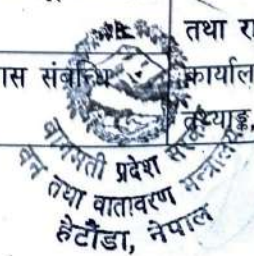 तथा रा
ास संबन्धि
कार्याल
तथ्याङ्क,
बागमती प्रदेश सरकार
वन तथा वातावरण मन्त्रालय
हेटौंडा, नेपाल